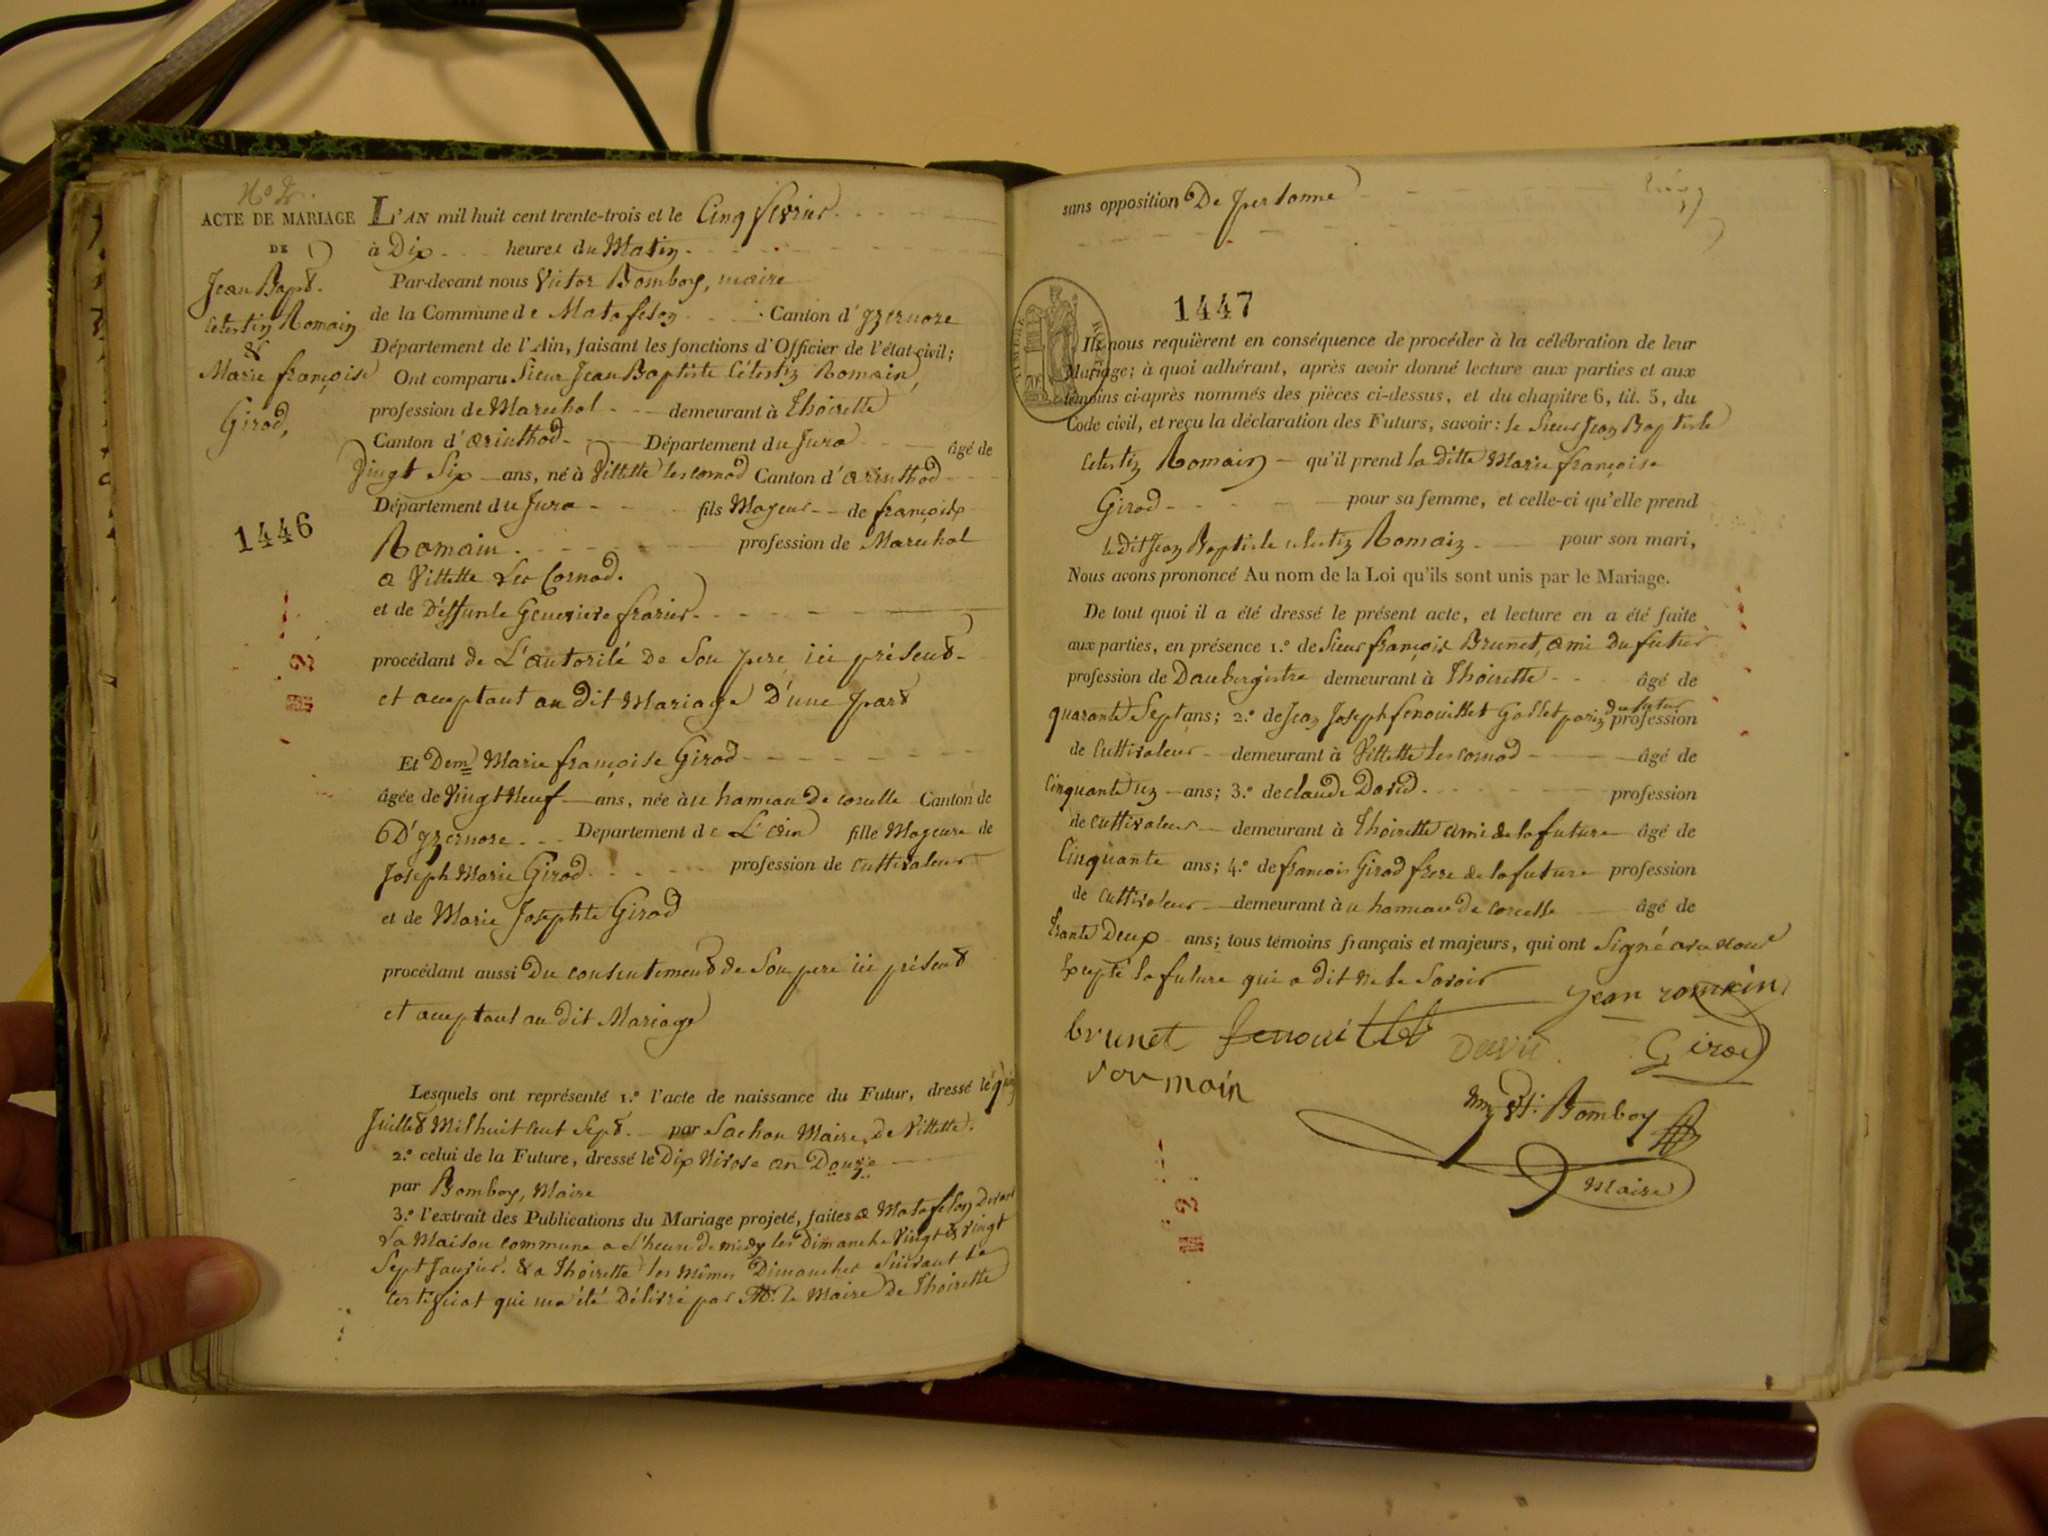 ACTE DE MARIAGE
DE
Jean Bapt.
Celestin Romain
&
Marie françoise
Girod,
1446
L'AN mil huit cent trente-trois et le Cinq fevrier
à Dix heures du Matin
Par-devant nous Victor Bomboy, maire
de la Commune de Matafelon Canton d'yzernore
Département de l'Ain, faisant les fonctions d'Officier de l'état-civil;
Ont comparu Sieur Jean Baptiste Célestin Romain,
profession de Marechal demeurant à Thoirette
Canton d'arinthod Département du Jura âgé de
Vingt Six ans, né à Villette les cornod Canton d'arinthod
Département du Jura fils Majeur de françois
Romain profession de Marechal
a Villette Les Cornod.
et de Déffunte Genevieve frarier
procédant de L'autorité de Son pere ici présent
et acceptant au dit Mariage D'une part
Et Dem Marie françoise Girod
âgée de Vingt Neuf ans, née àu hameau de corcelle Canton de
D'yzernore Departement de L'ain fille Majeure de
Joseph Marie Girod profession de cultivateur
et de Marie Josephte Girod
procédant aussi Du consentement de Son pere ici présent
et acceptant au dit Mariage
Lesquels ont représenté 1.º l'acte de naissance du Futur, dressé le
Juillet Mil huit Cent Sept. par Sachon Maire, de Villette.
2.º celui de la Future, dressé le Dix Nivose an Douze
par Bomboy, Maire
3.º l'extrait des Publications du Mariage projeté, faites a Matafelon Devant
La Maison commune a L'heure de midy les Dimanche Vingt & Vingt
Sept Janvier. & a Thoirette les mêmes Dimanches Suivant le
certificat qui m'a été Délivré par Mr. le Maire De Thoirette
sans opposition De personne
1447
Ils nous requièrent en conséquence de procéder à la célébration de leur
Mariage; à quoi adhérant, après avoir donné lecture aux parties et aux
témoins ci-après nommés des pièces ci-dessus, et du chapitre 6, tit. 5, du
Code civil, et reçu la déclaration des Futurs, savoir: le Sieur Jean Baptiste
Celestin Romain qu'il prend la Ditte Marie françoise
Girod pour sa femme, et celle-ci qu'elle prend
le Dit Jean Baptiste celestin Romain pour son mari,
Nous avons prononcé Au nom de la Loi qu'ils sont unis par le Mariage.
De tout quoi il a été dressé le présent acte, et lecture en a été faite
aux parties, en présence 1.º de Sieur françois Brunet, ami du futur
profession de Daubergiste demeurant à Thoirette âgé de
quarante Sept ans; 2.º de Jean Joseph fenouillet Gollet parin du futur profession
de Cultivateur demeurant à Villette les cornod âgé de
Cinquante ans; 3.º de claude David profession
de cultivateur demeurant à Thoirette ami de la future âgé de
Cinquante ans; 4.º de francois Girod frere de la future profession
de cultivateur demeurant àu hameau de corcelle âgé de
trante Deux ans; tous témoins français et majeurs, qui ont Signé avec nous
Excepté la future qui a dit ne le Savoir
jean romain
brunet fenouillet David Girod
romain
Bomboy
Maire